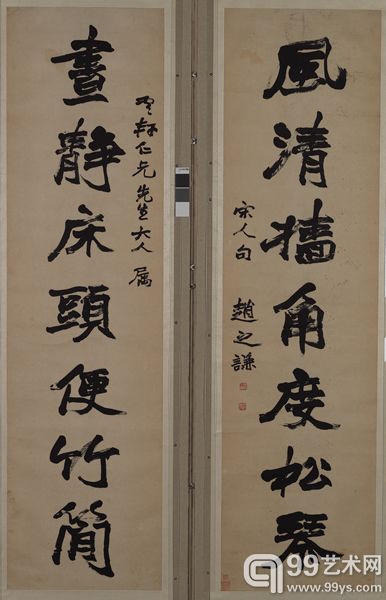 風清牆角度松琴
宋人句 趙之謙
軒仁兄先生大人屬
晝靜床頭便竹簡
99艺术网
www.99ys.com